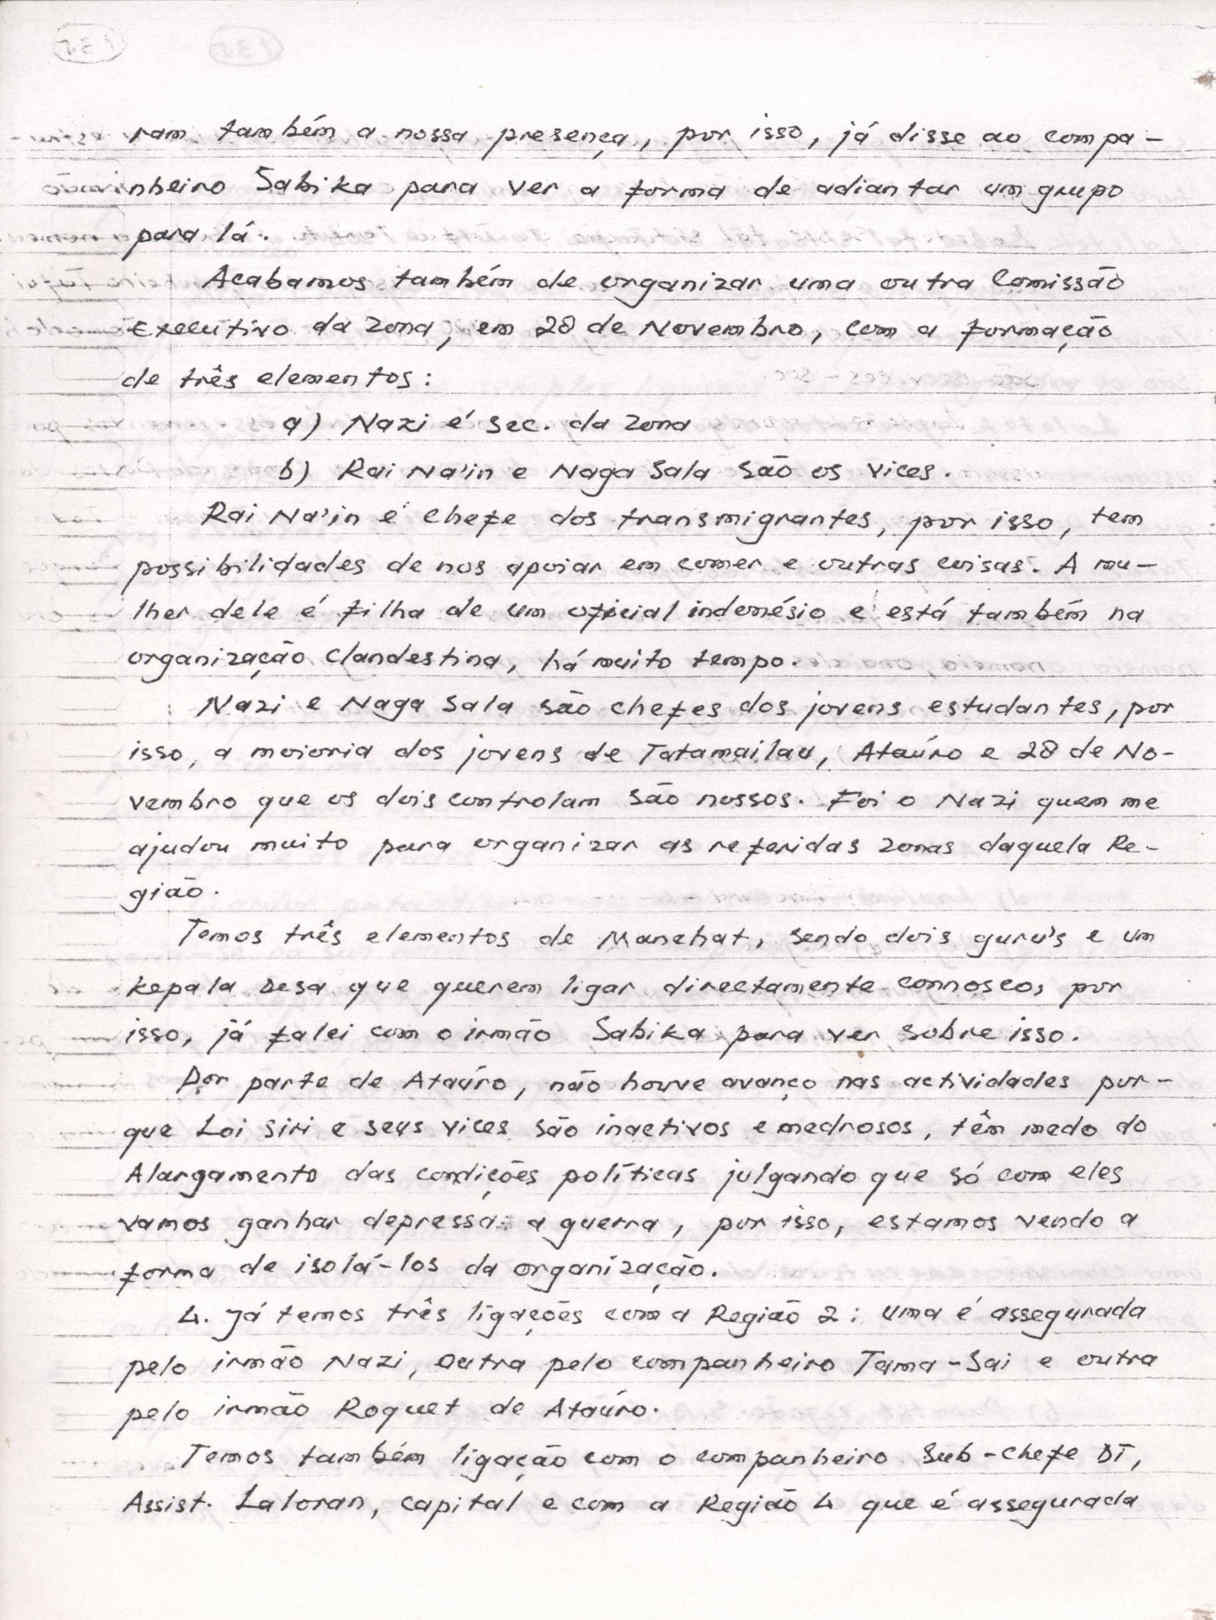 ram também a nossa presença, por isso, já disse ao compa-
nheiro Sabika para ver a forma de adiantar um grupo
para lá.
Acabamos também de organizar uma outra Comissão
Executivo da Zona, em 28 de Novembro, com a formação
de três elementos:
a) Nazi é sec. da Zona
b) Rai Na'in e Naga Sala são os vices.
Rai Na'in é chefe dos transmigrantes, por isso, tem
possibilidades de nos apoiar em comer e outras coisas. A mu-
lher dele é filha de um oficial indonésio e está também na
organização clandestina, há muito tempo.
Nazi e Naga Sala são chefes dos jovens estudantes, por
isso, a maioria dos jovens de Tatamailau, Ataúro e 28 de No-
vembro que os dois controlam são nossos. Foi o Nazi quem me
ajudou muito para organizar as referidas zonas daquela Re-
gião.
Temos três elementos de Manehat, sendo dois guru's e um
kepala Desa que querem ligar directamente connosco, por
isso, já falei com o irmão Sabika para ver sobre isso.
Por parte de Ataúro, não houve avanço nas actividades por-
que Loi Siri e seus vices são inactivos e medrosos, têm medo do
Alargamento das condições políticas julgando que só com eles
vamos ganhar depressa a guerra, por isso, estamos vendo a
forma de isolá-los da organização.
4. Já temos três ligações com a Região 2: uma é assegurada
pelo irmão Nazi, outra pelo companheiro Tama-Sai e outra
pelo irmão Roquet de Ataúro.
Temos também ligação com o companheiro Sub-chefe DI,
Assist. Laloran, capital e com a Região 4 que é assegurada